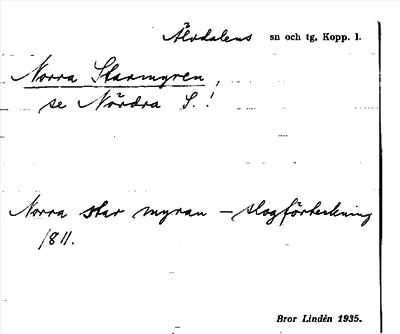 Älvdalens sn och tg, Kopp. l.
Norra Starmyren,
se Nördra S.!
Norra star myran – slogförteckning
1811.
Bror Lindén 1935.